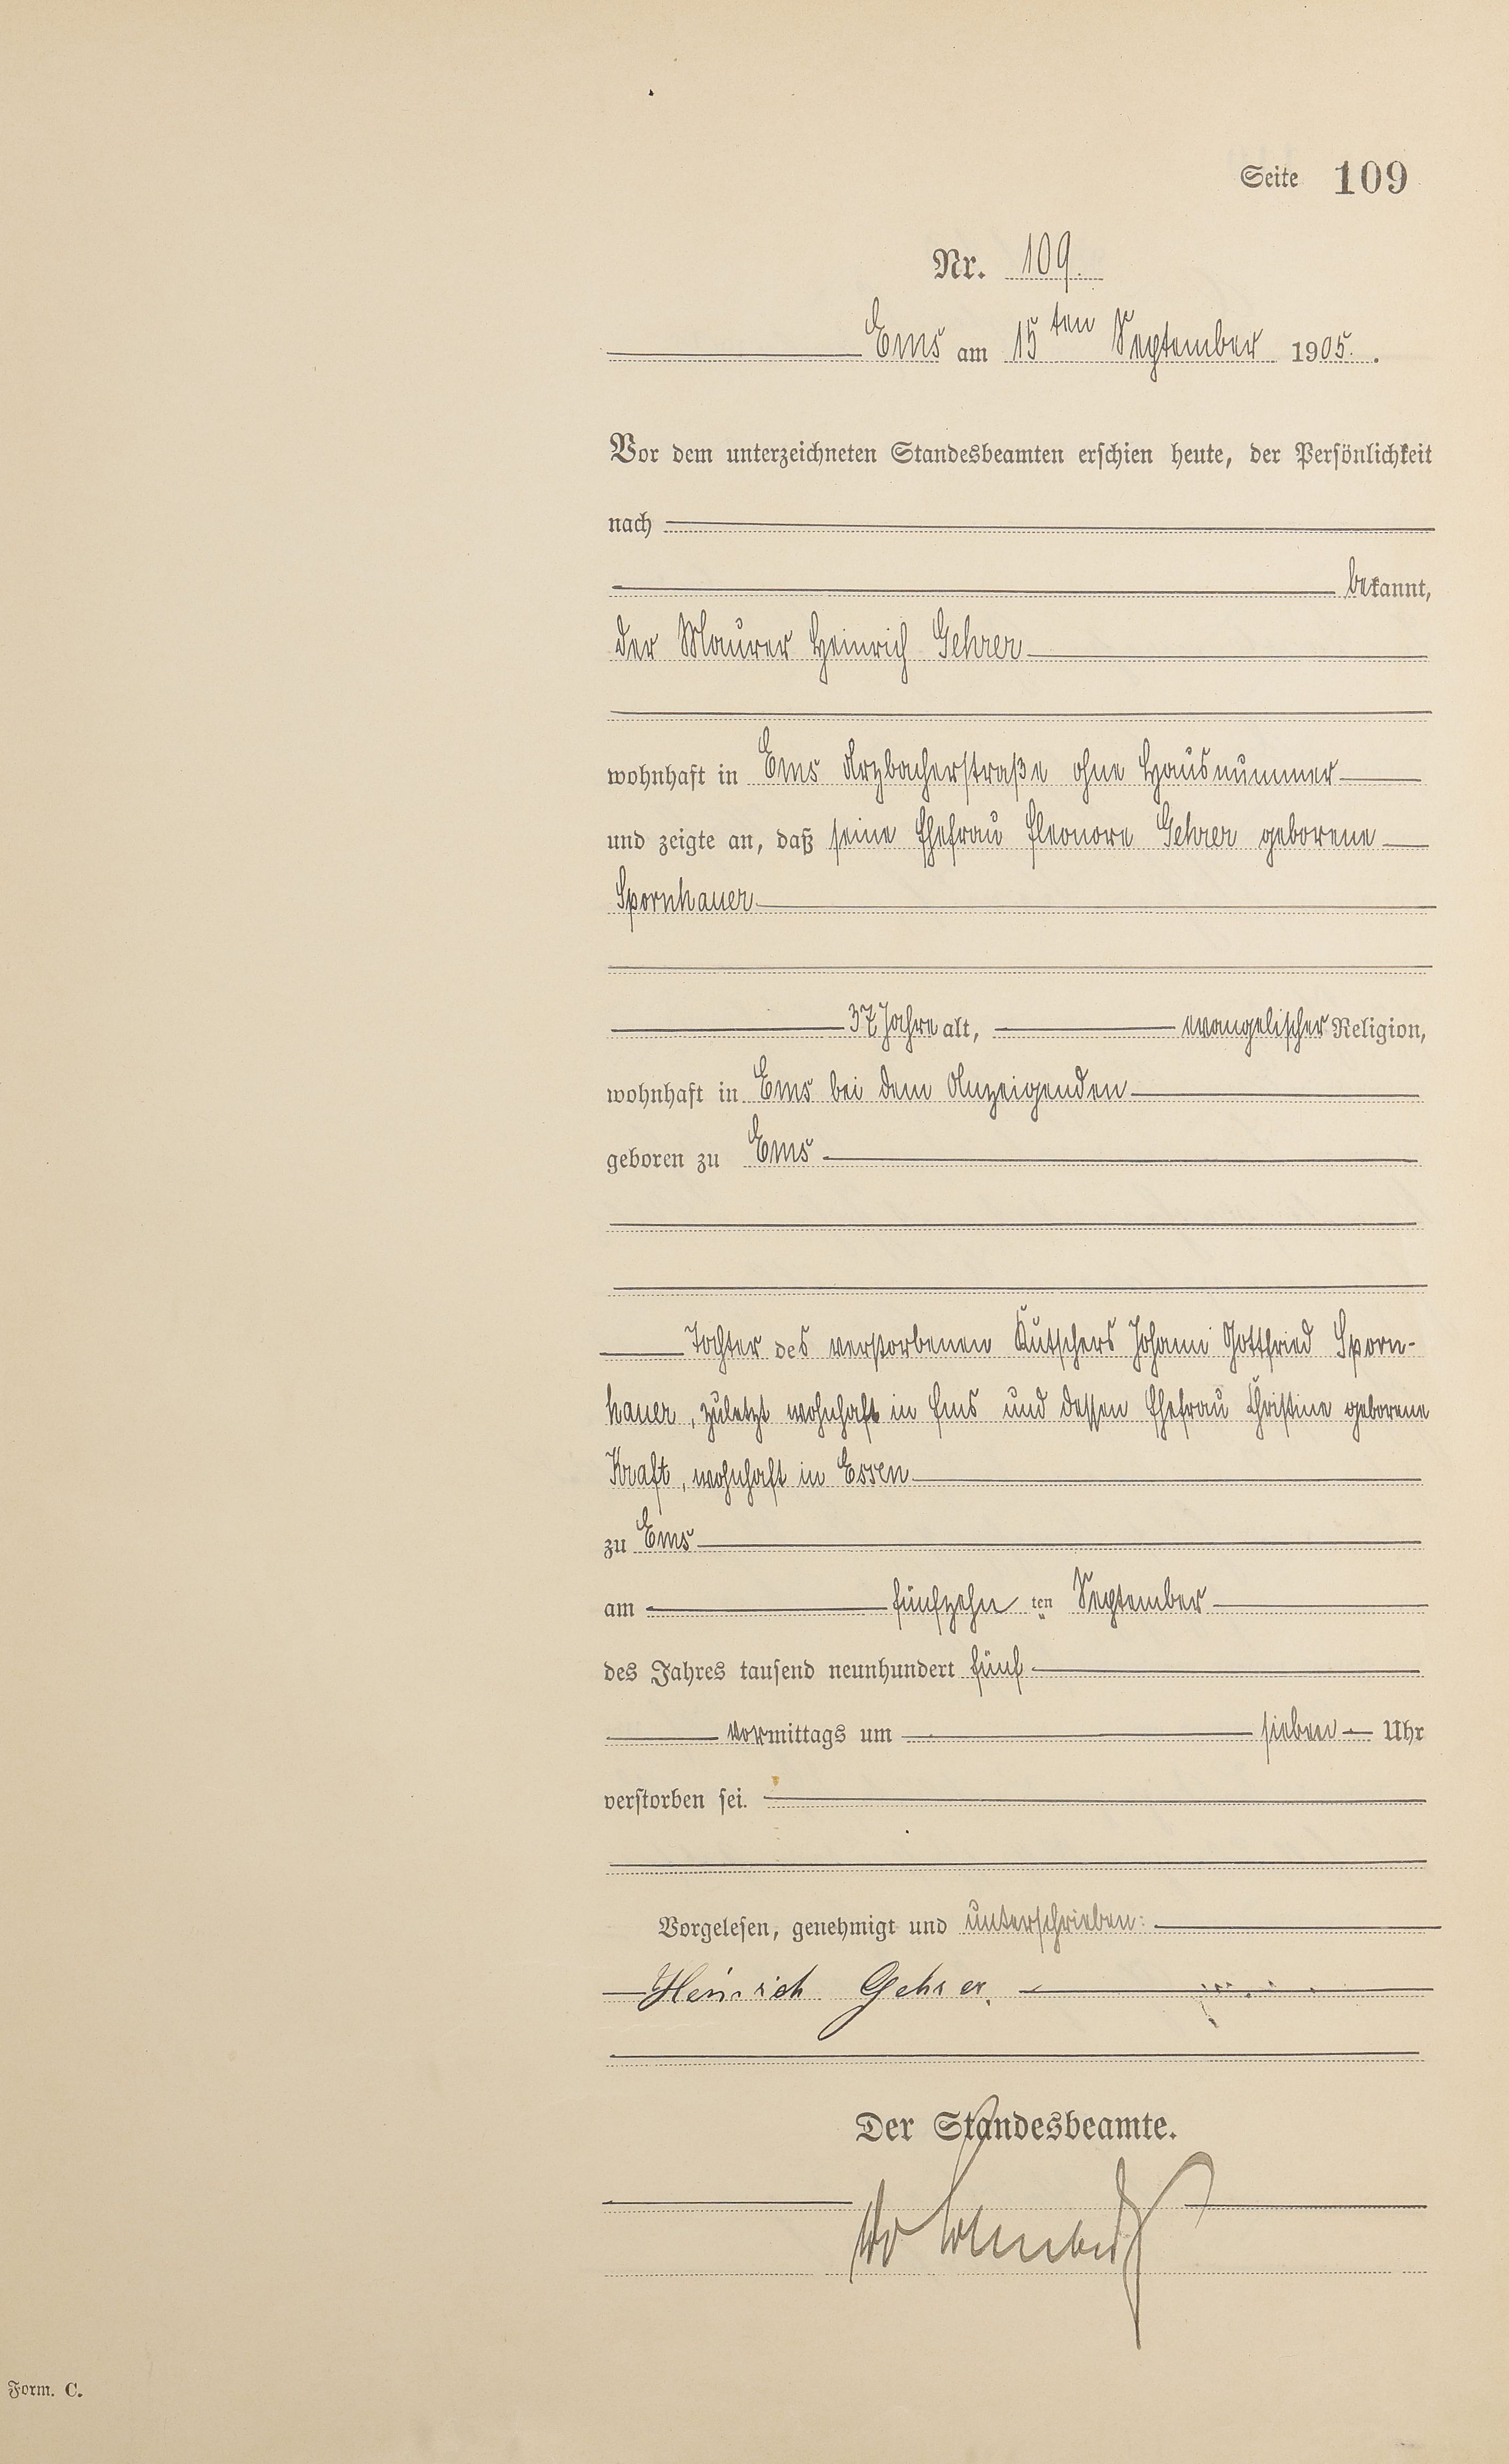 Seite 109
Nr. 109.
Ems am 15ten September 1905.
Vor dem unterzeichneten Standesbeamten erschien heute, der Persönlichkeit
nach
bekannt,
der Maurer Heinrich Gehrer
wohnhaft in Ems Arzbacherstraße ohne Hausnummer
und zeigte an, daß seine Ehefrau Eleonore Gehrer geborene
Spornhauer
37 Jahre alt, evangelischer Religion,
wohnhaft in Ems bei dem Anzeigenden
geboren zu Ems
Tochter des verstorbenen Kutschers Johann Gottfried Sporn-
hauer, zuletzt wohnhaft in Ems und dessen Ehefrau Christine geborene
Kraft, wohnhaft in Essen
zu Ems
am fünfzehn ten September
des Jahres tausend neunhundert fünf
vormittags um sieben Uhr
verstorben sei.
Vorgelesen, genehmigt und unterschrieben:
Heinrich Gehrer.
Der Standesbeamte.
Form. C.